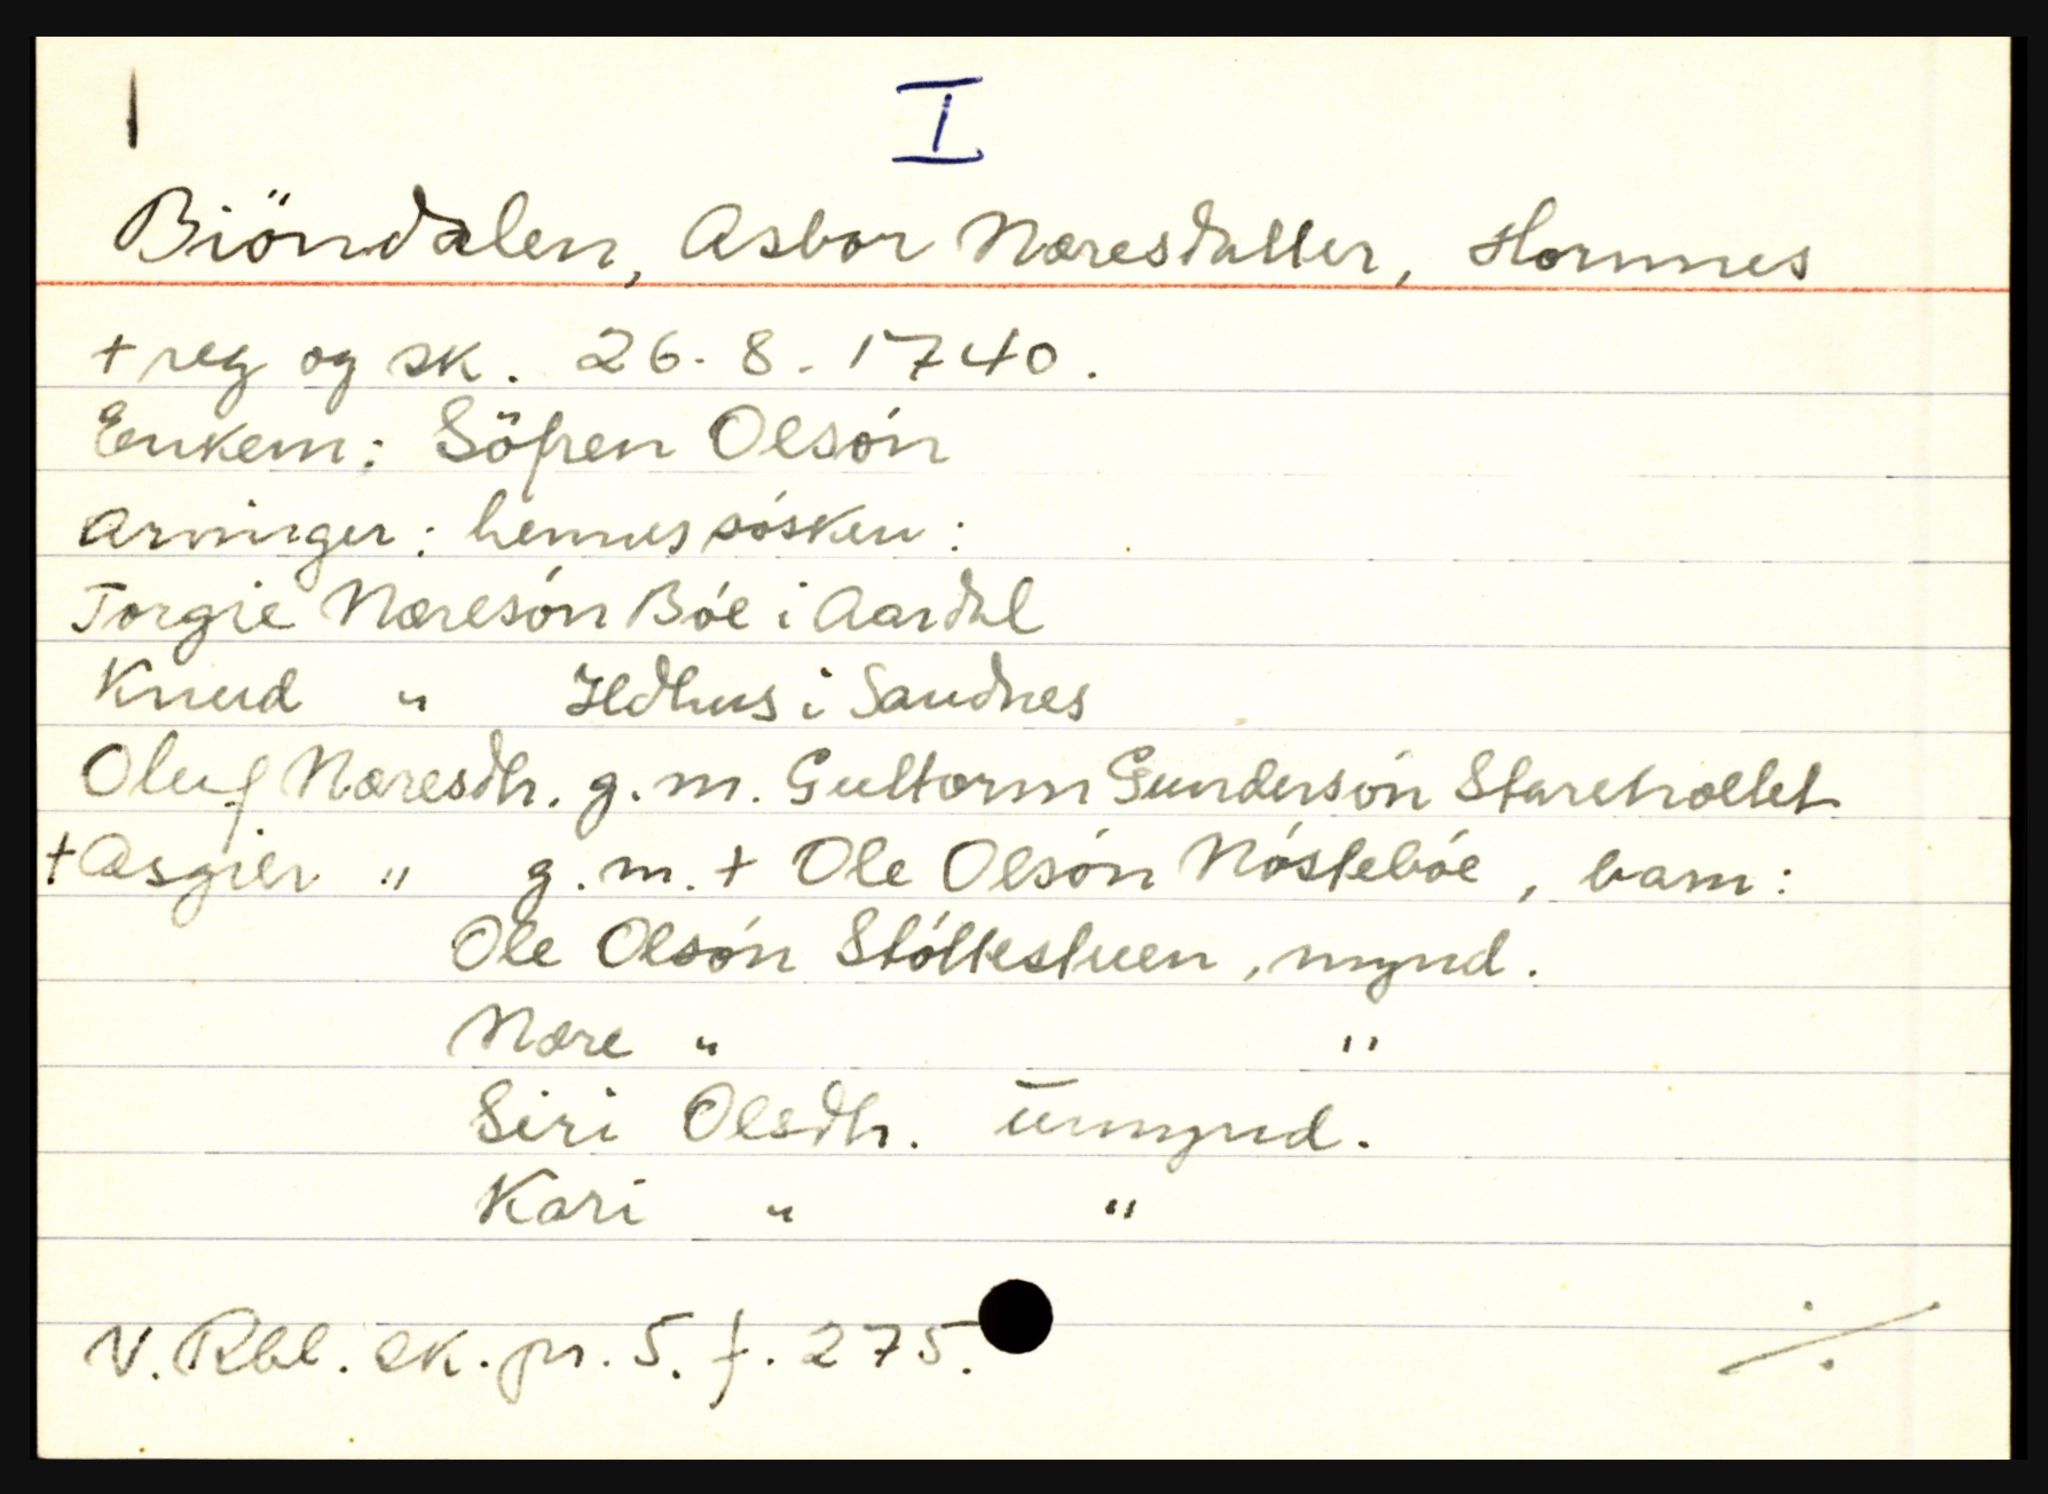 I
Biöndalen, Asbor Næresdatter, Hornnes
+ reg og sk. 26.8.1740.
Enkem: Söfren Olsón
Arvinger: hennes sösken:
Torgie Næresón Bóe i Aardal
Knud " Ildhus i Sandnes
Oluf Næresdtr. g.m. Guttorm Gundersón
+ Asgier " g.m. + Ole Olsón Nóstebóe, barn:
Ole Olsón Stóltestuen, mynd.
Nære " "
Siri Olsdtr. umynd.
Kari " "
N. Rbl. sk. pr. 5. f. 275.